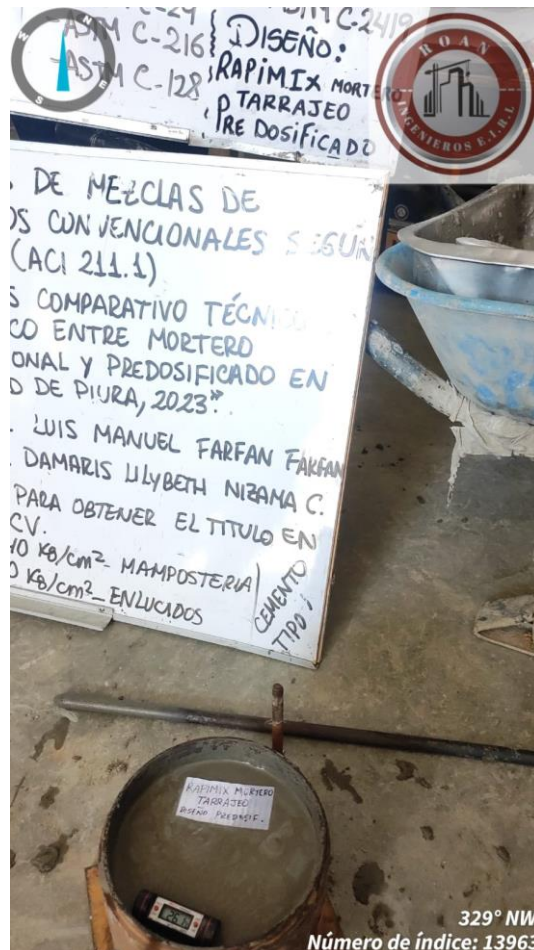 ASTM C-216
ASTM C-128
DISEÑO:
RAPIMIX MORTERO
TARRAJEO
PRE DOSIFICADO
ROAN
INGENIEROS E.I.R.L
N
E
S
W
DE MEZCLAS DE
OS CONVENCIONALES SEGUN
(ACI 211.1)
S COMPARATIVO TÉCNI
CO ENTRE MORTERO
ONAL Y PREDOSIFICADO EN
D DE PIURA, 2023".
LUIS MANUEL FARFAN FARFAN
DAMARIS LILYBETH NIZAMA C.
PARA OBTENER EL TITULO EN
CV.
10 KG/cm² - MAMPOSTERIA
0 KG/cm² - ENLUCIDOS
CEMENTO
TIPO:
RAPIMIX MORTERO
TARRAJEO
DISEÑO PREDOSIF.
329° NW
Número de índice: 13963